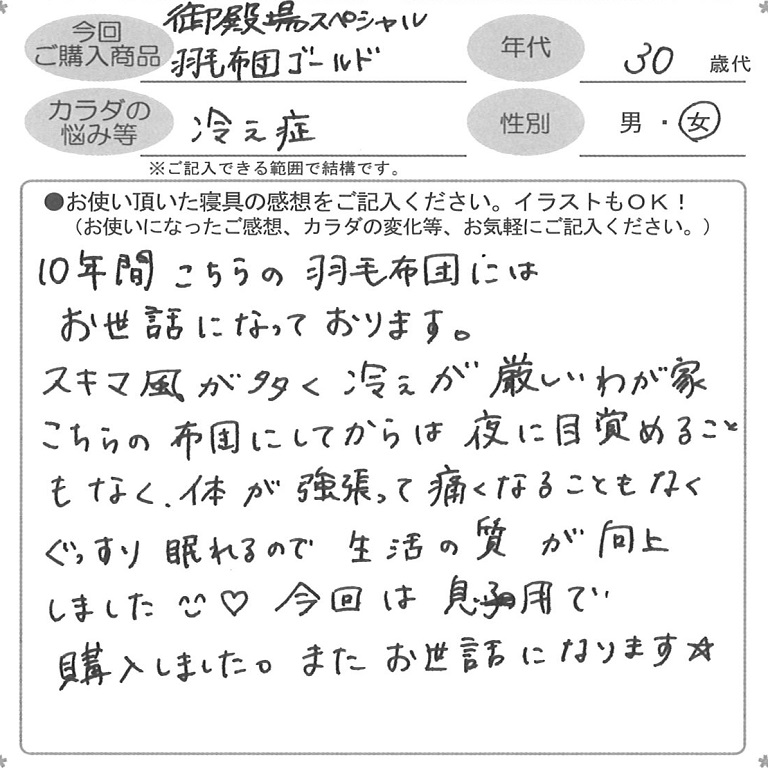 今回
ご購入商品
御殿場スペシャル
羽毛布団ゴールド
年代
30 歳代
カラダの
悩み等
冷え症
性別
男・女
※ご記入できる範囲で結構です。
●お使い頂いた寝具の感想をご記入ください。イラストもOK!
(お使いになったご感想、カラダの変化等、お気軽にご記入ください。)
10年間こちらの羽毛布団には
お世話になっております。
スキマ風が多く冷えが厳しいわが家
こちらの布団にしてからは夜に目覚めること
もなく、体が強張って痛くなることもなく
ぐっすり眠れるので生活の質が向上
しました♡今回は息子用で
購入しました。またお世話になります☆